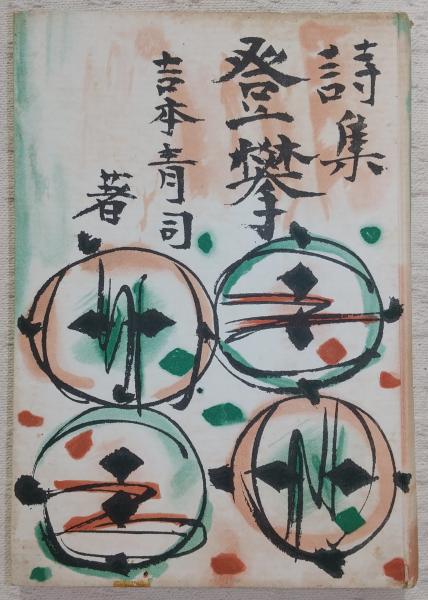 詩集
登攀
吉本青司
著